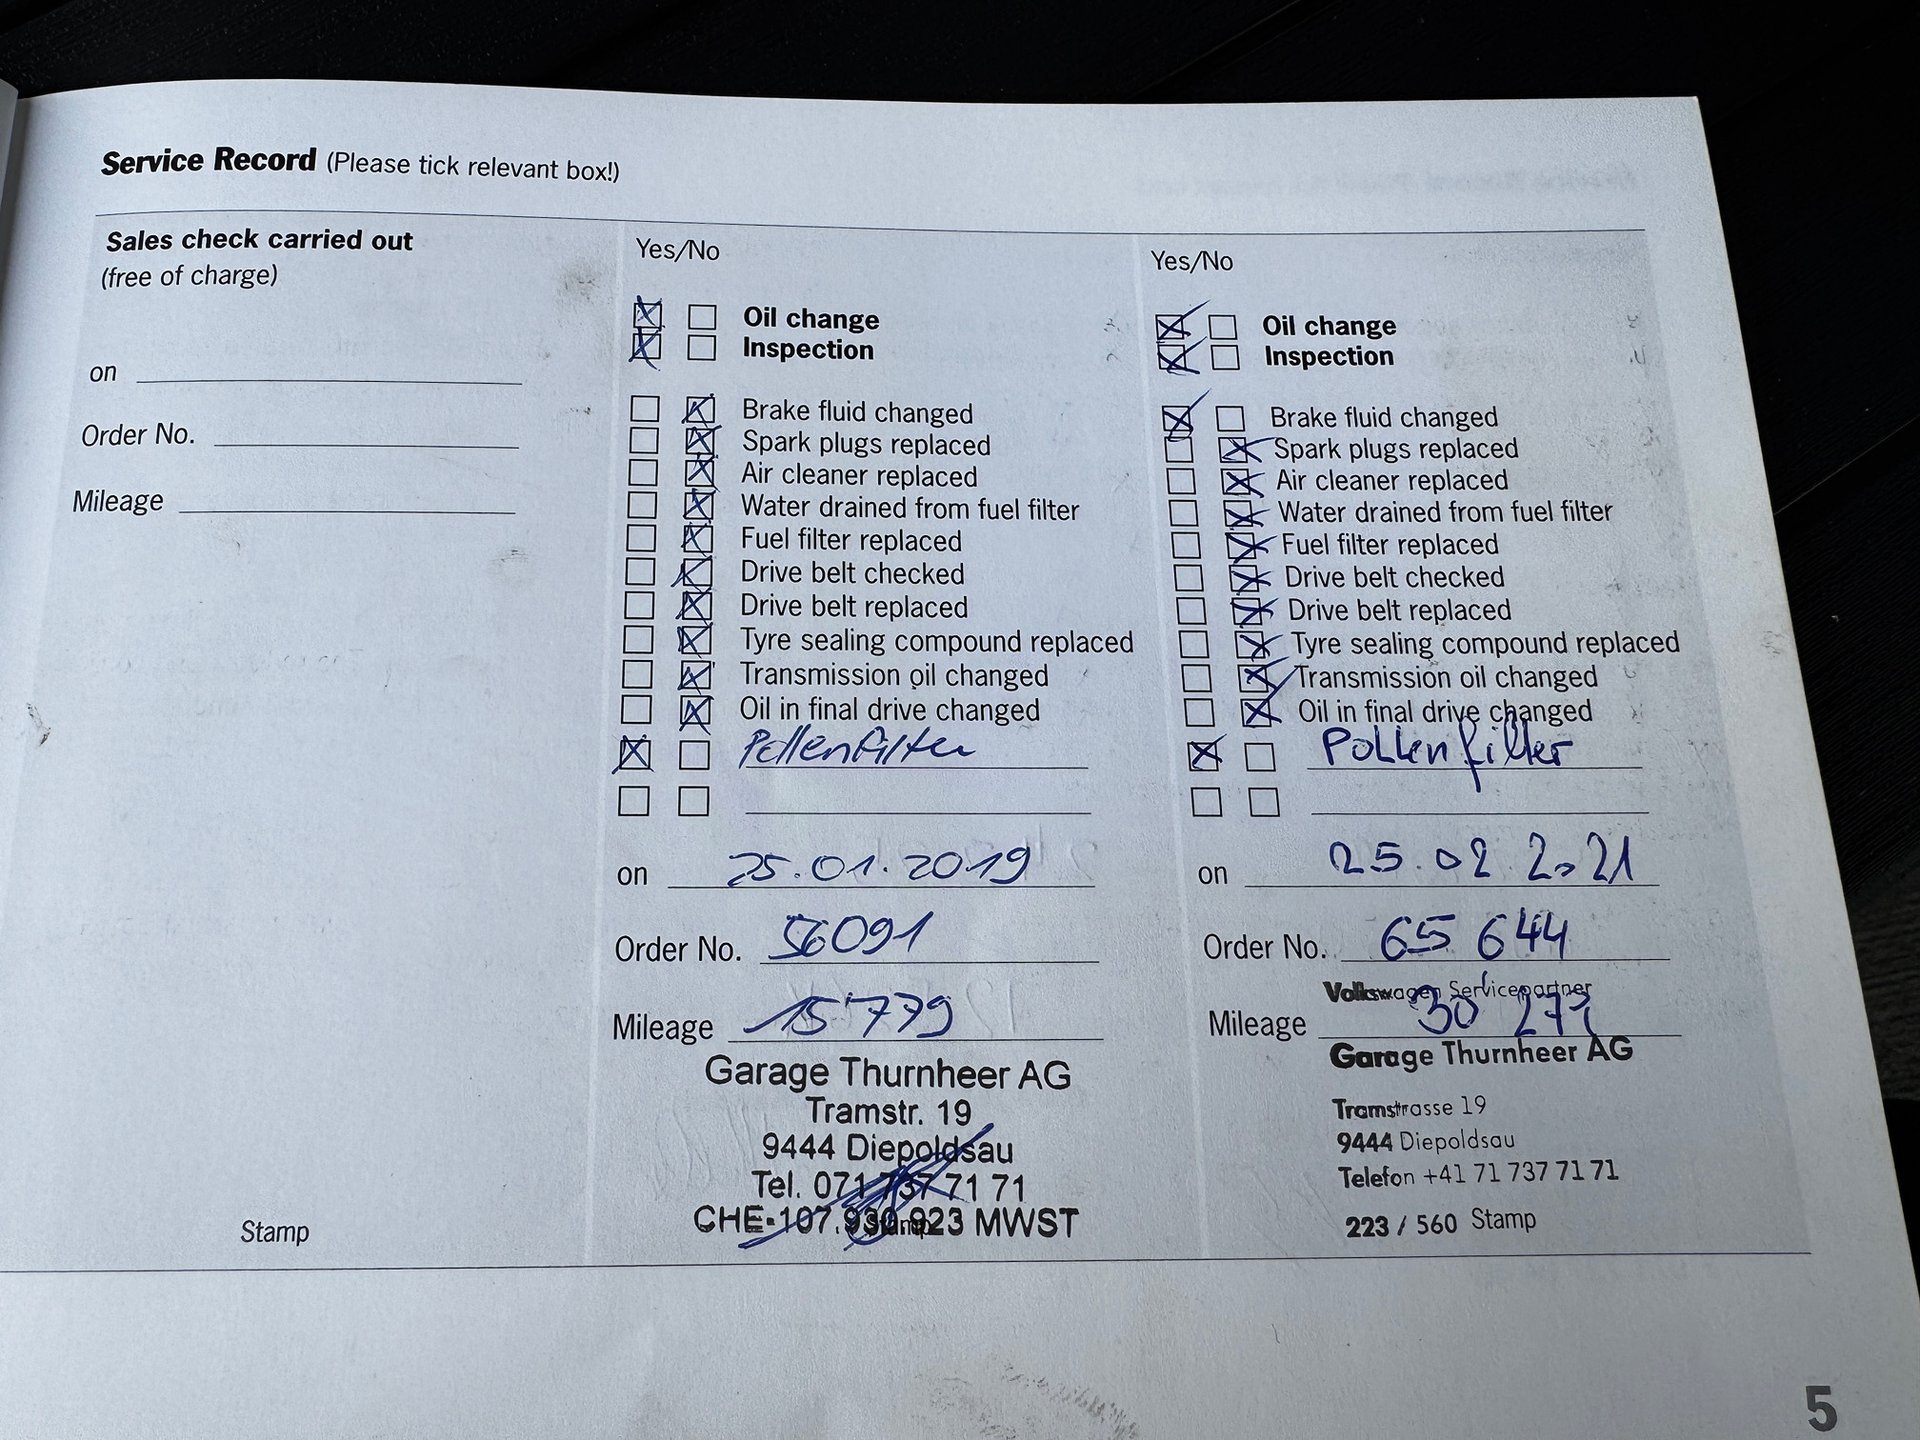 Service Record (Please tick relevant box!)
Sales check carried out
(free of charge)
on
Order No.
Mileage
Stamp
Yes/No
Oil change
Inspection
Brake fluid changed
Spark plugs replaced
Air cleaner replaced
Water drained from fuel filter
Fuel filter replaced
Drive belt checked
Drive belt replaced
Tyre sealing compound replaced
Transmission oil changed
Oil in final drive changed
Pollenfilter
on 25.01.2019
Order No. 56091
Mileage 15'779
Garage Thurnheer AG
Tramstr. 19
9444 Diepoldsau
Tel. 071 737 71 71
CHE-107.930.923 MWST
Stamp
Yes/No
Oil change
Inspection
Brake fluid changed
Spark plugs replaced
Air cleaner replaced
Water drained from fuel filter
Fuel filter replaced
Drive belt checked
Drive belt replaced
Tyre sealing compound replaced
Transmission oil changed
Oil in final drive changed
Pollenfilter
on 25.02 2021
Order No. 65 644
Volkswagen Servicepartner
Mileage 30'
Garage Thurnheer AG
Tramstrasse 19
9444 Diepoldsau
Telefon +41 71 737 71 71
223 / 560 Stamp
5